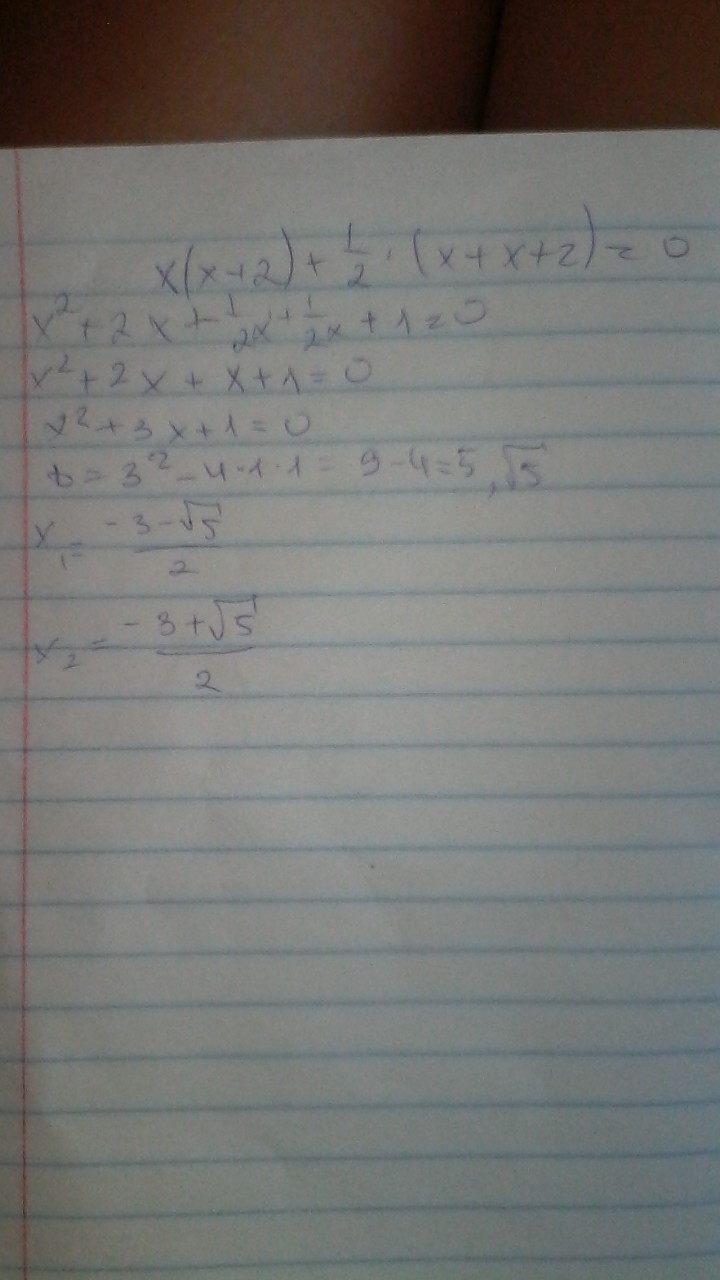 x(x+2)+1/2·(x+x+2)=0
x²+2x+1/2x+1/2x+1=0
x²+2x+x+1=0
x²+3x+1=0
D=3²-4·1·1=9-4=5,√5
x₁=(-3-√5)/2
x₂=(-3+√5)/2